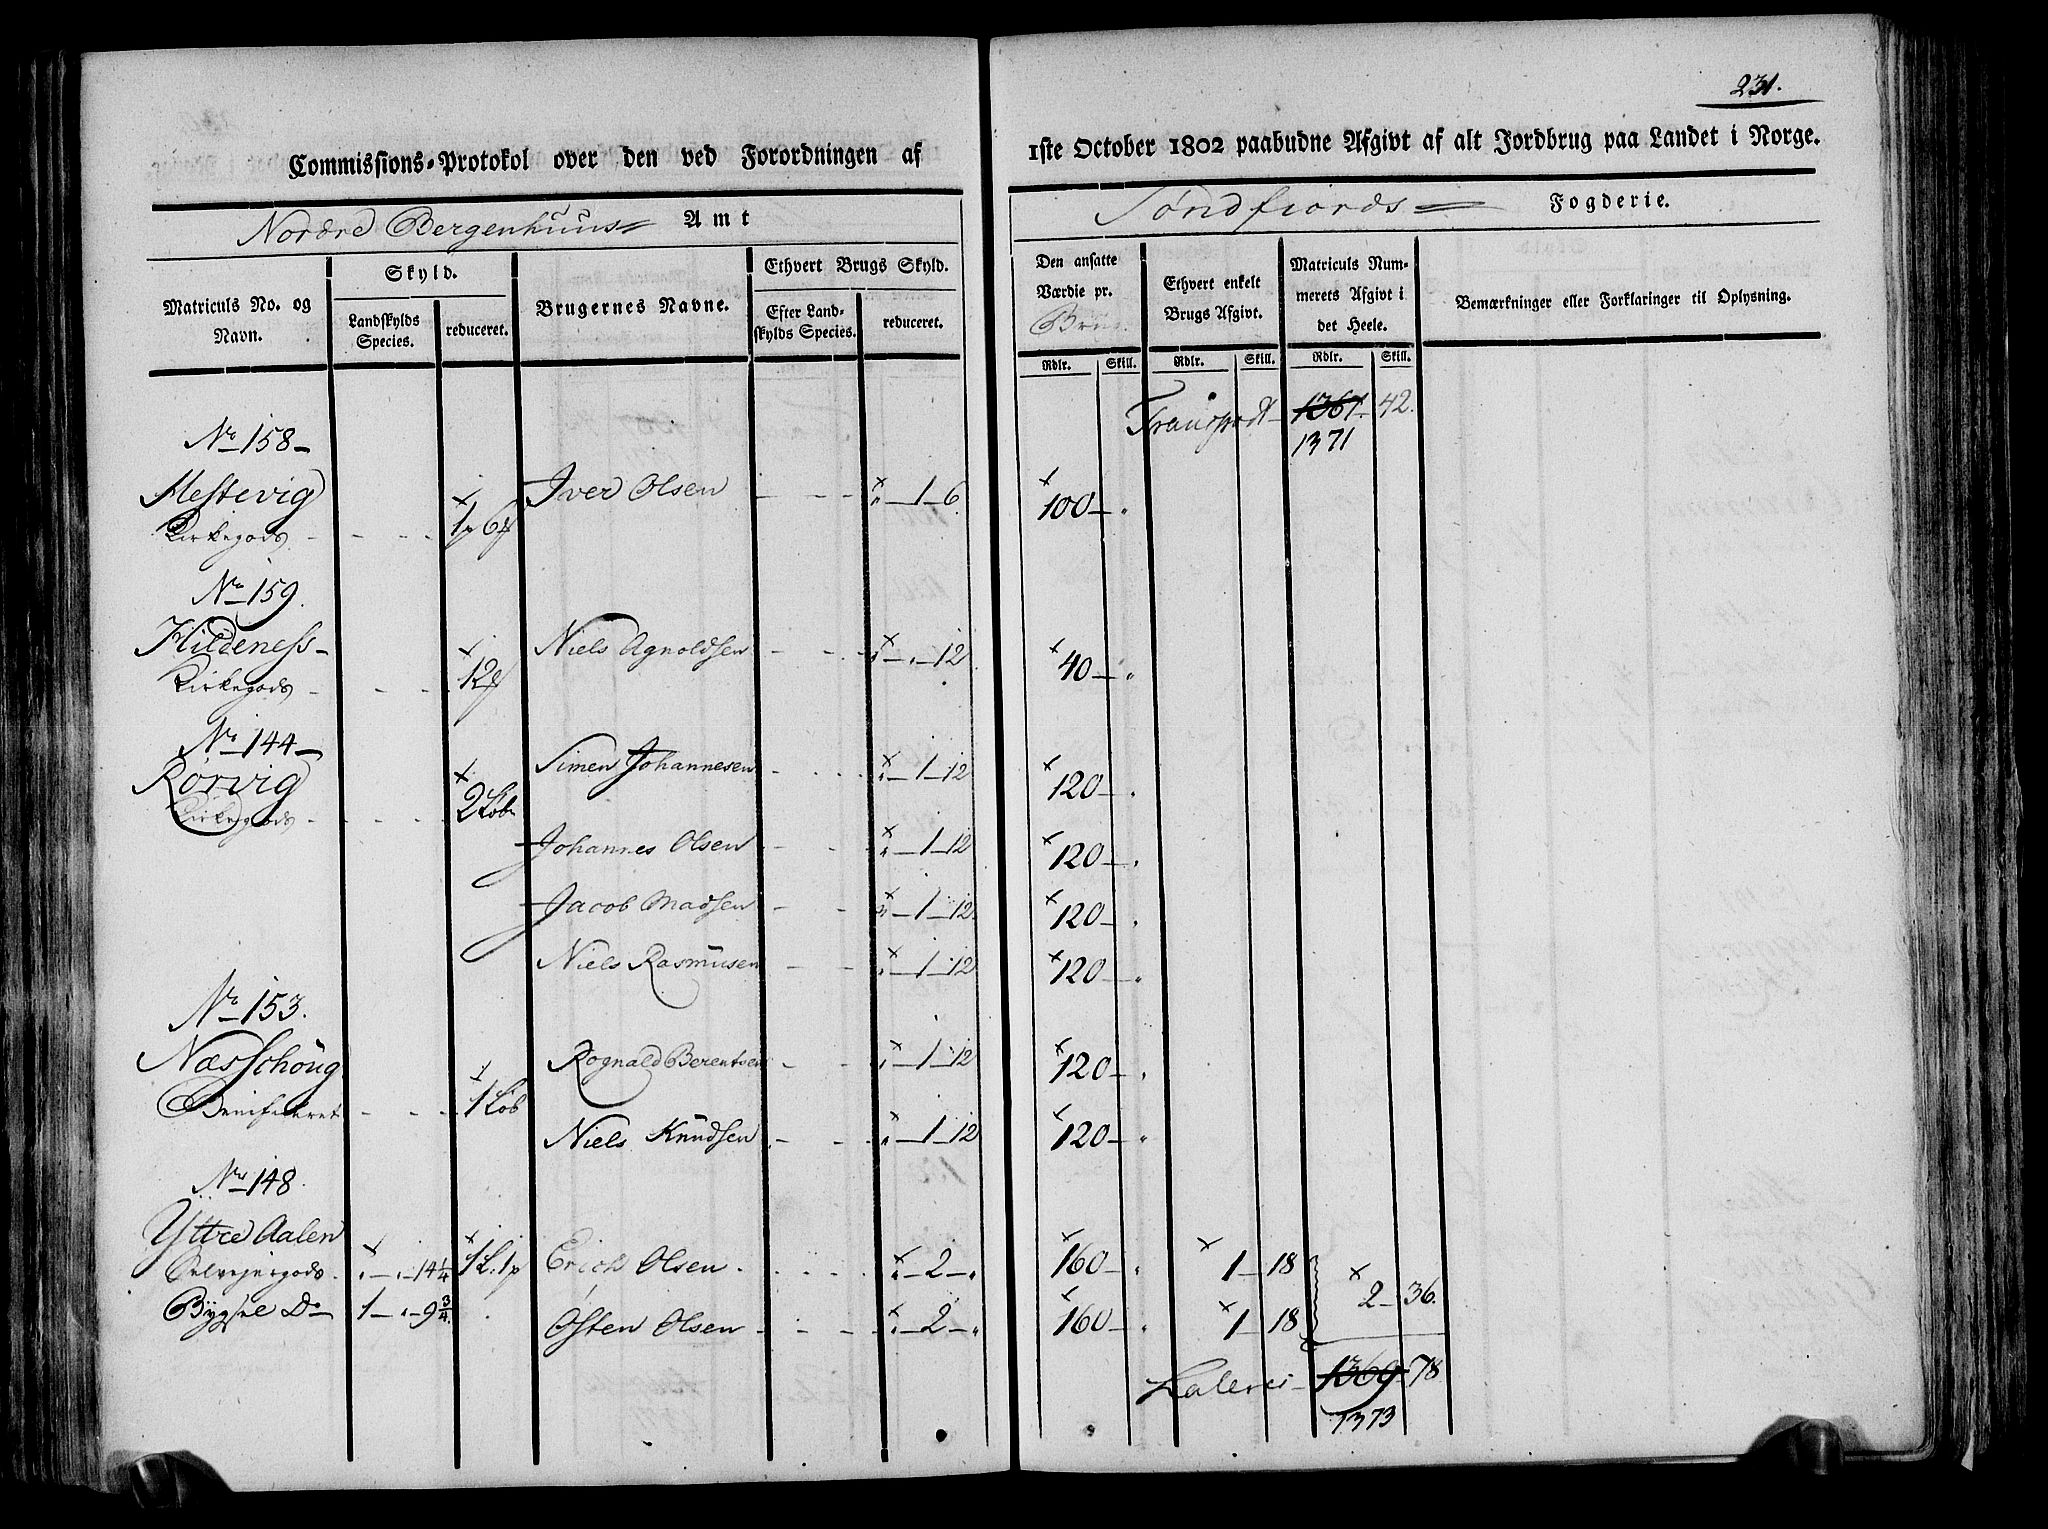 231.
Commissions-Protokol over den ved Forordningen af 1ste October 1802 paabudne Afgivt af alt Jordbrug paa Landet i Norge.
Nordre Bergenhuus Amt
Søndfiords Fogderie.
Matriculs No. og Navn.
Skyld.
Landskylds Species.
reduceret.
Brugernes Navne.
Ethvert Brugs Skyld.
Efter Landskylds Species.
reduceret.
Den ansatte Værdie pr. Brug
Ethvert enkelt Brugs Afgivt.
Matriculs Nummerets Afgivt i det Heele.
Bemærkninger eller Forklaringer til Oplysning.
Rdlr. Skill. Rdlr. Skill. Rdlr. Skill.
Transport 1367 42.
1371
No 158
Hestevig Iver Olsen " 1 6 100 "
Kirkegods 1 p 6
No 159.
Hildeness Niels Agnoldsen " " 12 40 "
Kirkegods 12
No 144
Rørvig Simen Johannesen " 1 12 120 "
Kirkegods 2 Løb
Johannes Olsen " 1 12 120 "
Jacob Madsen " 1 12 120 "
Niels Rasmusen " 1 12 120 "
No 153.
Næsschoug Rognald Berentsen " 1 12 120 "
Benificeret 1 Løb
Niels Knudsen " 1 12 120 "
No 148.
Yttre Aalen
Selvejergods " " 14 1/4 1 L. 1 p Erich Olsen " 2 " 160 " 1 18
2 36.
Bygsel Do 1 " 9 3/4 Østen Olsen " 2 " 160 " 1 18
Lateris 1369 78
1373